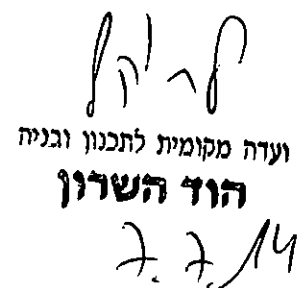 ועדה מקומית לתכנון ובניה
הוד השרון
7.7.14